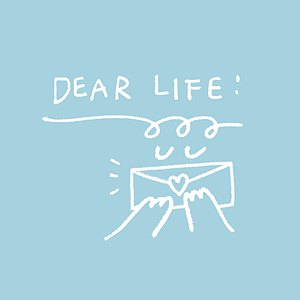 DEAR LIFE: